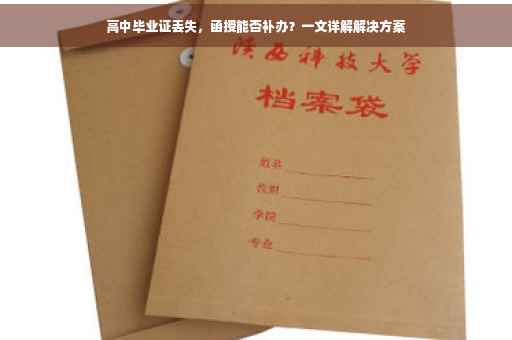 高中毕业证丢失，函授能否补办？一文详解解决方案
陕西科技大学
档案袋
姓名
性别
学院
专业